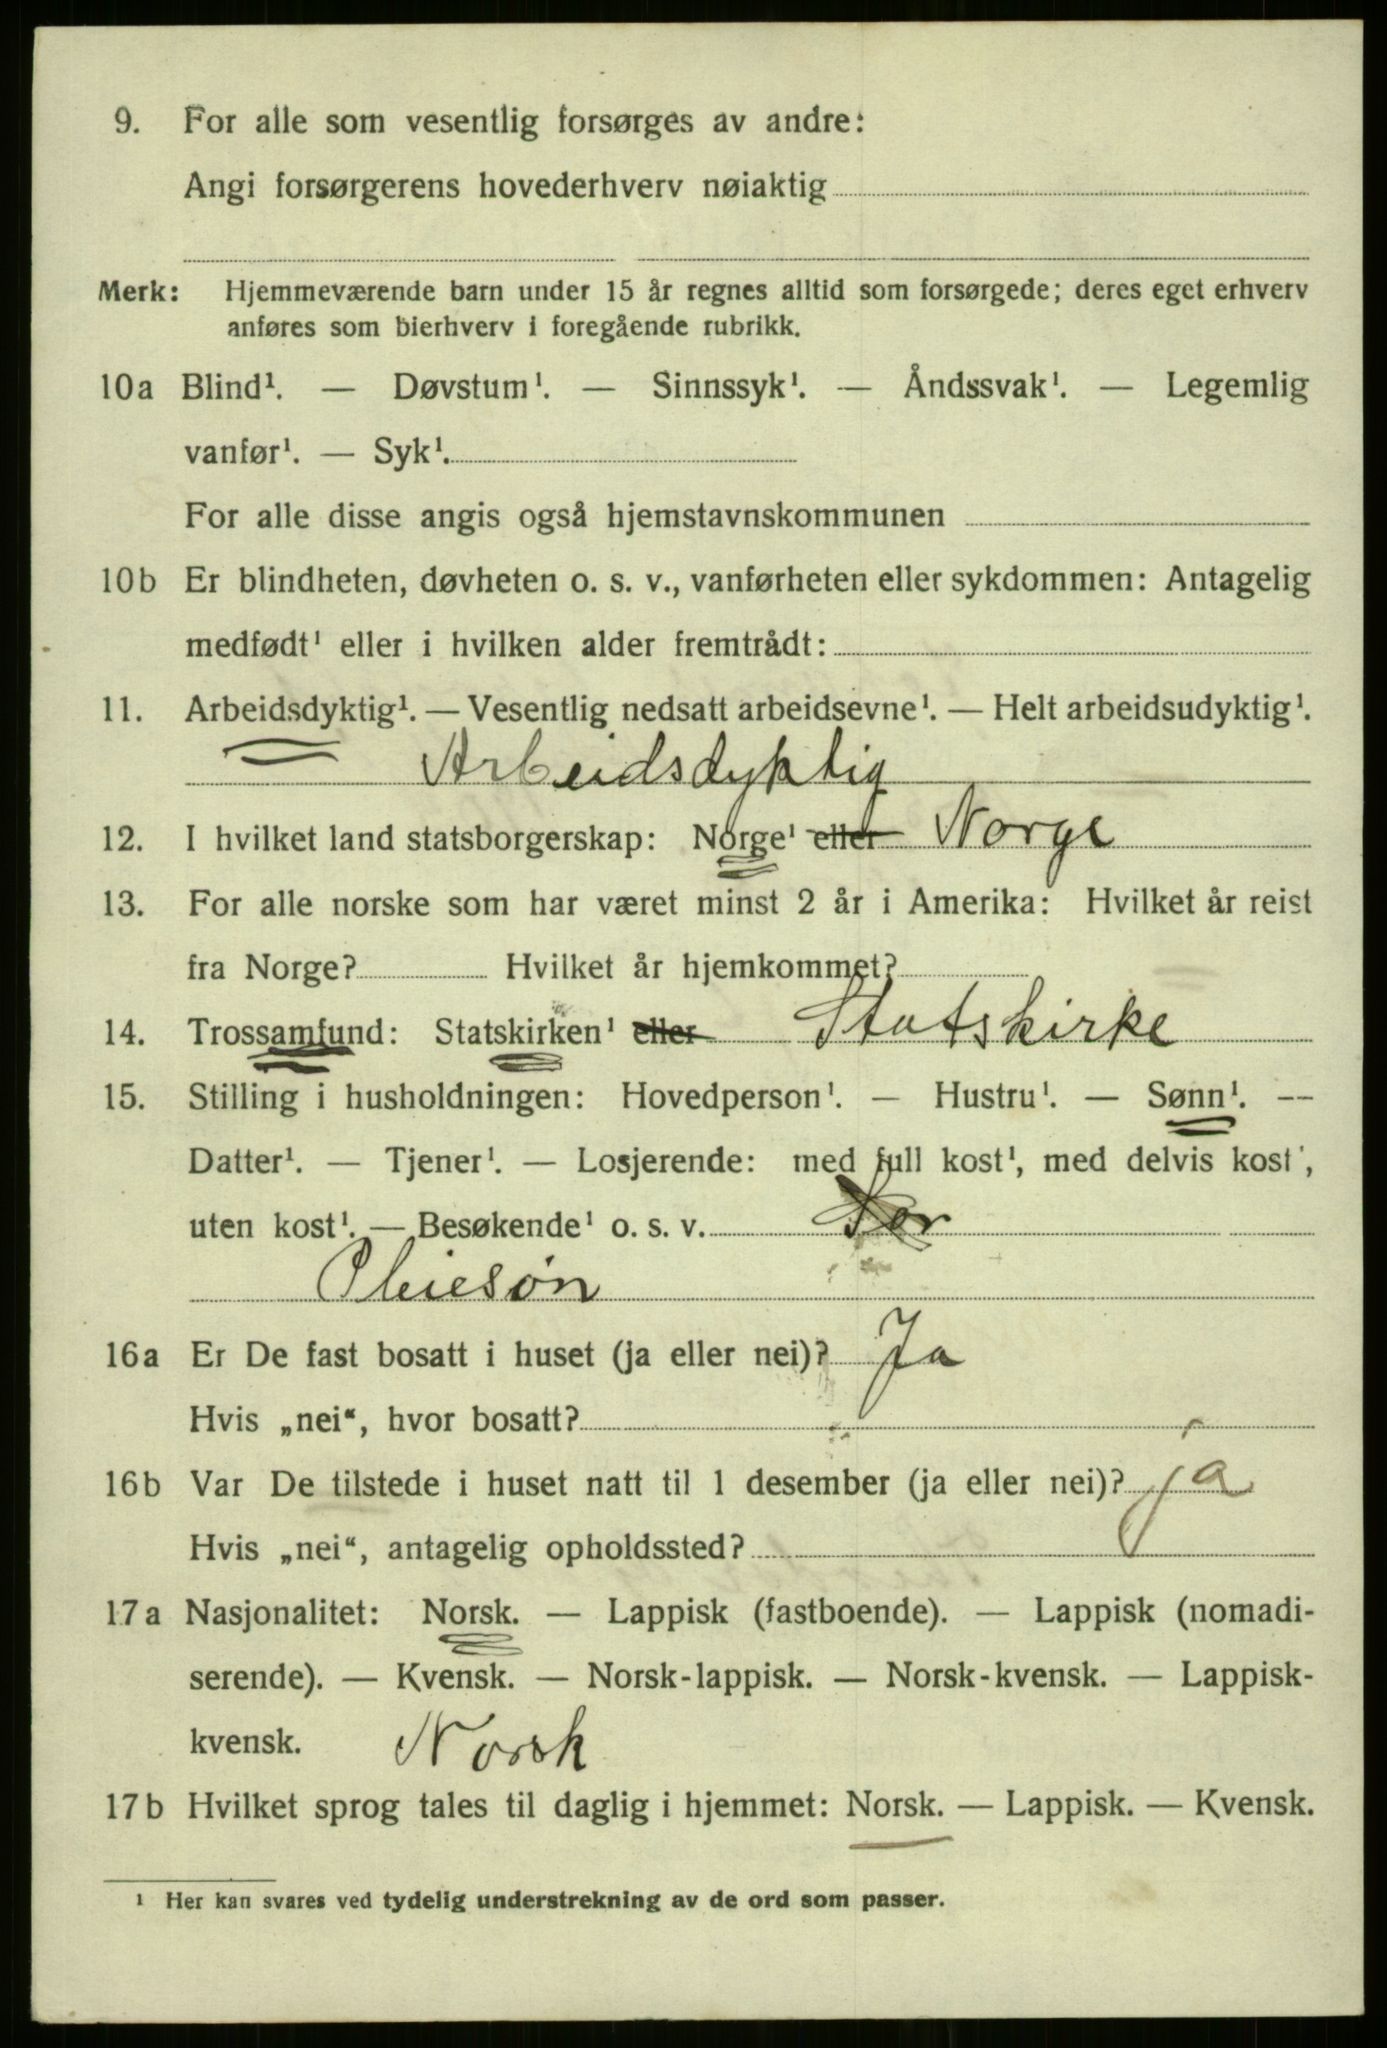 9. For alle som vesentlig forsørges av andre:
Angi forsørgerens hovederhverv nøiaktig
Merk: Hjemmeværende barn under 15 år regnes alltid som forsørgede; deres eget erhverv
anføres som bierhverv i foregående rubrikk.
10a Blind¹. — Døvstum¹. — Sinnssyk¹. — Åndssvak¹. — Legemlig
vanfør¹. — Syk¹.
For alle disse angis også hjemstavnskommunen
10b Er blindheten, døvheten o. s. v., vanførheten eller sykdommen: Antagelig
medfødt¹ eller i hvilken alder fremtrådt:
11. Arbeidsdyktig¹. — Vesentlig nedsatt arbeidsevne¹. — Helt arbeidsudyktig¹.
Arbeidsdyktig
12. I hvilket land statsborgerskap: Norge¹ eller Norge
13. For alle norske som har været minst 2 år i Amerika: Hvilket år reist
fra Norge? Hvilket år hjemkommet?
14. Trossamfund: Statskirken¹ eller Statskirke
15. Stilling i husholdningen: Hovedperson¹. — Hustru¹. — Sønn¹. —
Datter¹. — Tjener¹. — Losjerende: med full kost¹, med delvis kost¹,
uten kost¹. — Besøkende¹ o. s. v.
Pleiesøn
16a Er De fast bosatt i huset (ja eller nei)? Ja
Hvis „nei“, hvor bosatt?
16b Var De tilstede i huset natt til 1 desember (ja eller nei)? ja
Hvis „nei“, antagelig opholdssted?
17a Nasjonalitet: Norsk. — Lappisk (fastboende). — Lappisk (nomadi-
serende). — Kvensk. — Norsk-lappisk. — Norsk-kvensk. — Lappisk-
kvensk. Norsk
17b Hvilket sprog tales til daglig i hjemmet: Norsk. — Lappisk. — Kvensk.
¹ Her kan svares ved tydelig understrekning av de ord som passer.